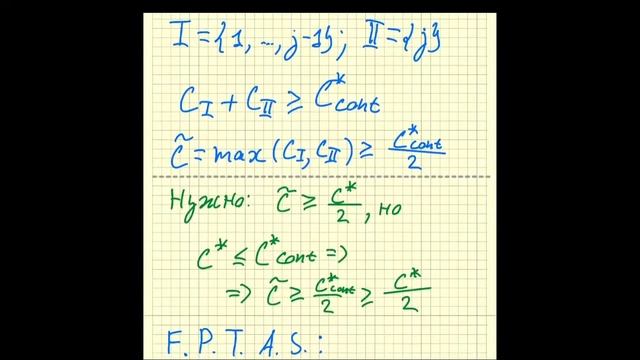 I = {1, ..., j-1}; II = {j}
C_I + C_II ≥ C*_cont
C̃ = max(C_I, C_II) ≥ C*_cont / 2
Нужно: C̃ ≥ C* / 2, но
C* ≤ C*_cont ⇒
⇒ C̃ ≥ C*_cont / 2 ≥ C* / 2
F. P. T. A. S.: